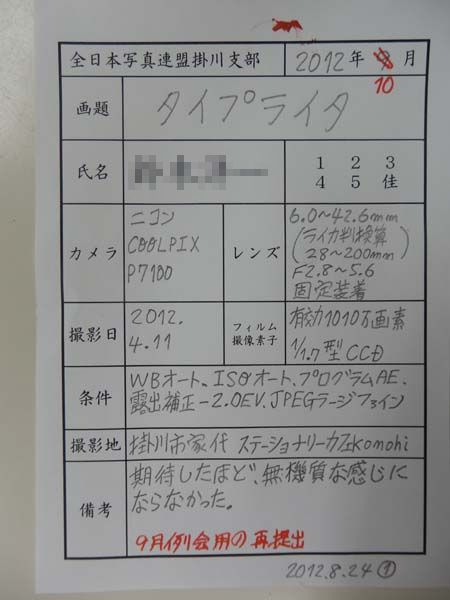 全日本写真連盟掛川支部 2012年 9月
10
画題 タイプライタ
氏名 1 2 3
4 5 佳
カメラ ニコン
COOLPIX
P7100
レンズ 6.0~42.6mm
(ライカ判換算
28~200mm)
F2.8~5.6
固定装着
撮影日 2012.
4.11
フィルム
撮像素子
有効1010万画素
1/1.7型CCD
条件 WBオート、ISOオート、プログラムAE、
露出補正-2.0EV、JPEGラージファイン
撮影地 掛川市家代 ステーショナリーカフェKomohi
備考 期待したほど、無機質な感じに
ならなかった。
9月例会用の再提出
2012.8.24 ①